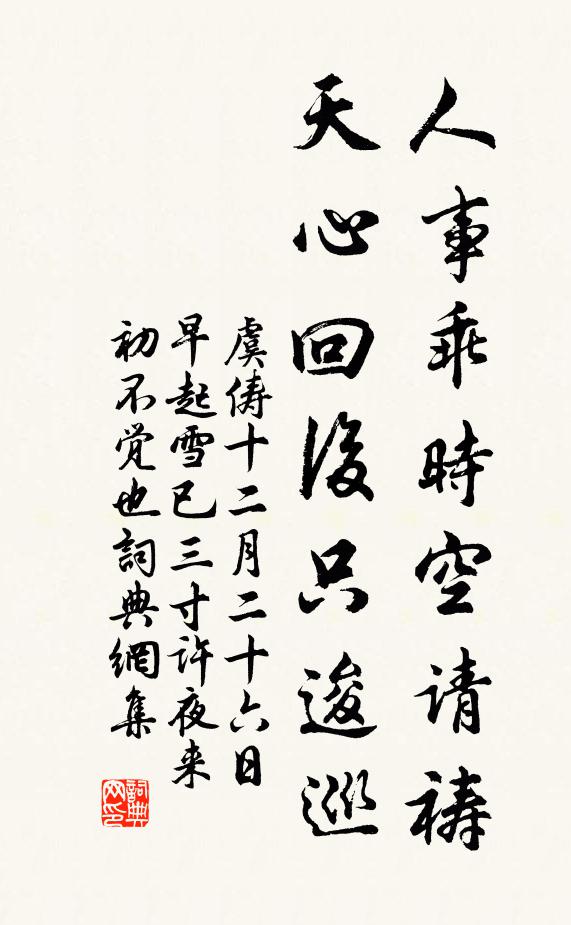 人事乖時空请禱
天心回復只逡巡
虞儔十二月二十六日
早起雪已三寸许夜来
初不觉也詞典網集
詞典网印